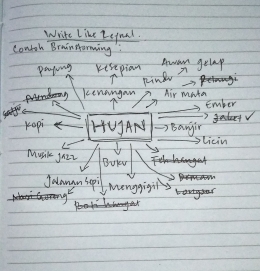 Write Like Zeynal.
Contoh Brainstorming :
Awan gelap
payung
Kesepian
Rindu
Pelangi
Mendung
Kenangan
Air Mata
Ember
Kopi
HUJAN
Banjir
Licin
Musik Jazz
Buku
Teh hangat
Jalanan Sepi
Menggigil
Longsor
Nasi Goreng
Roti hangat